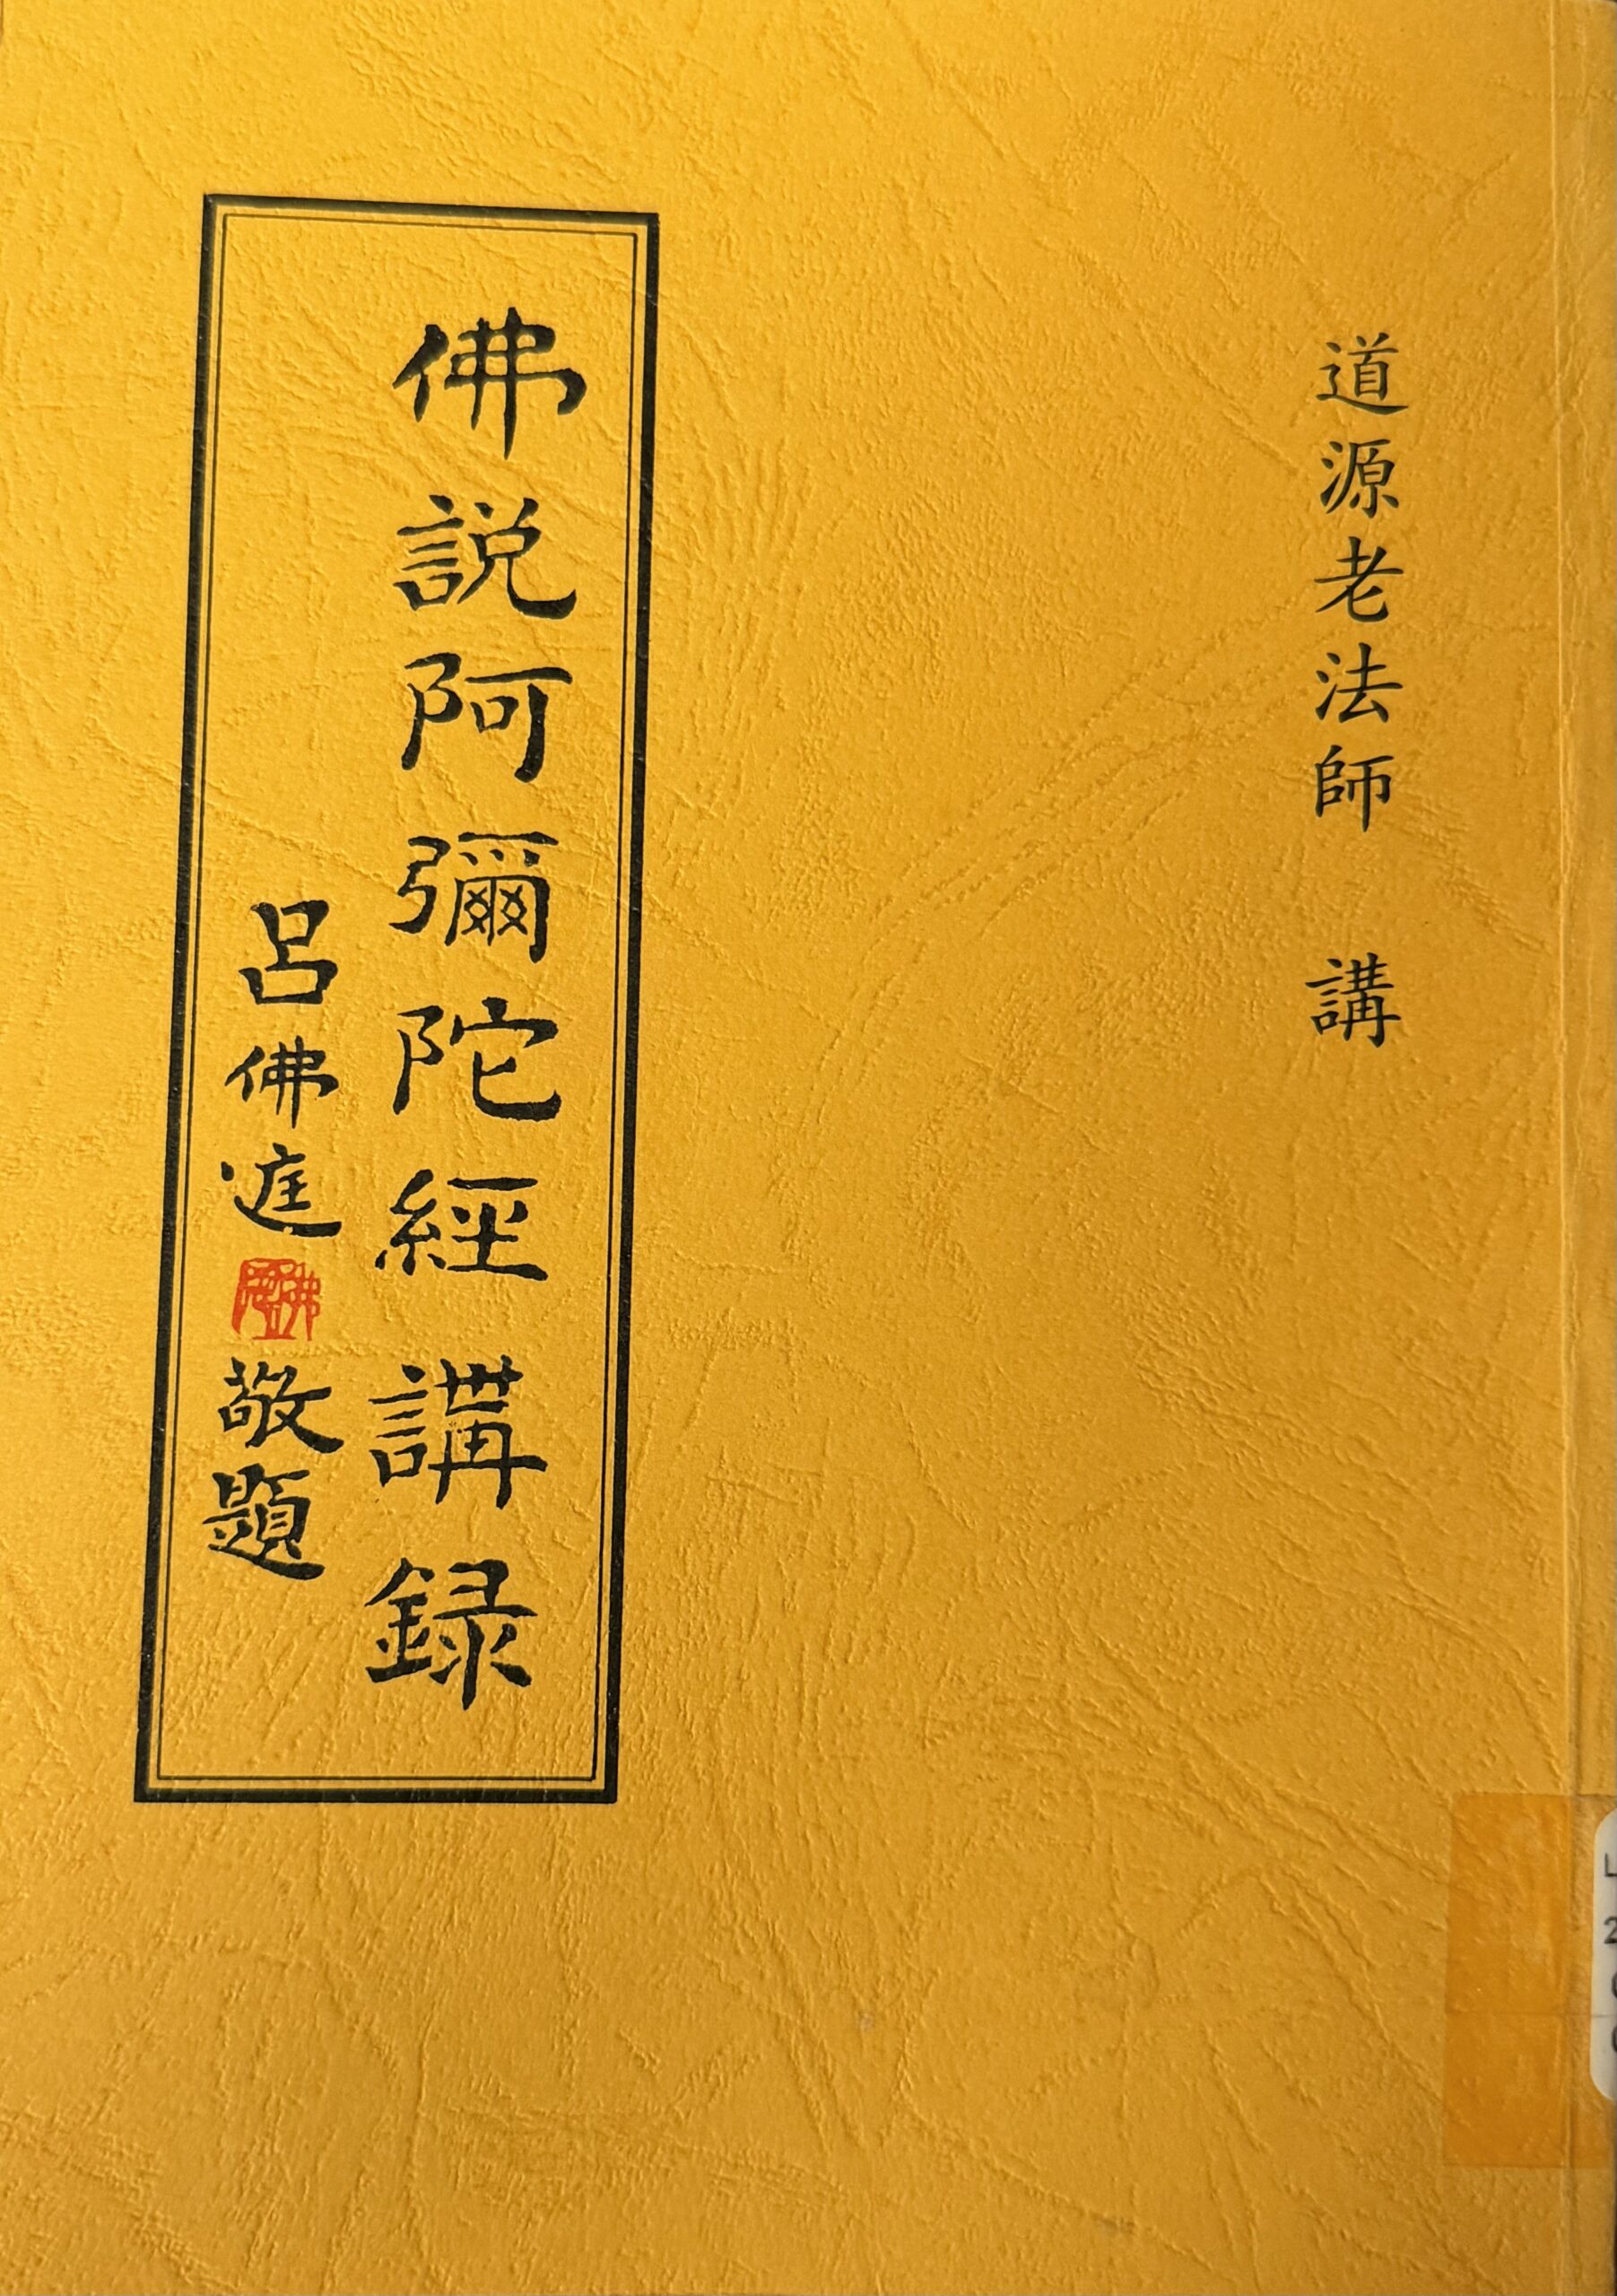 道源老法師 講
佛說阿彌陀經講錄
呂佛庭敬題